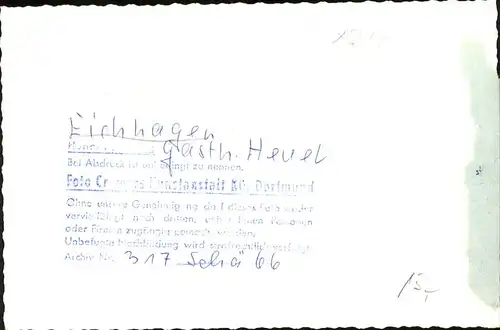 Eichhagen
Gasth. Heuel
Bei Abdruck ist unbedingt zu nennen:
Foto Cramers Kunstanstalt KG, Dortmund
Ohne unsere Genehmigung darf dieses Foto weder
vervielfältigt noch dritten Personen
oder Firmen zugängig gemacht werden.
Unbefugte Nachbildung wird strafrechtlich verfolgt.
Archiv Nr. 317 Schä 66
/5,-